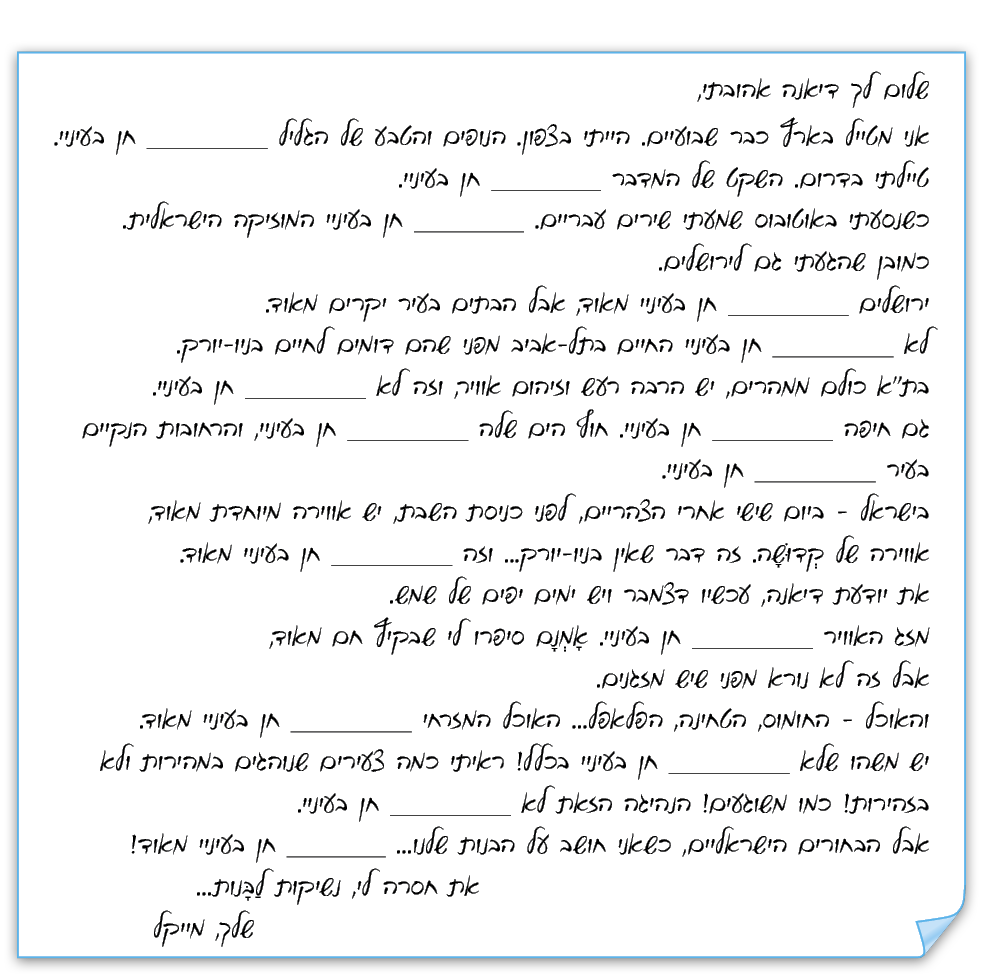 שלום לך דיאנה אהובתי,
אני מטייל בארץ כבר שבועיים. הייתי בצפון. הנופים והטבע של הגליל __________ חן בעיניי.
טיילתי בדרום. השקט של המדבר _________ חן בעיניי.
כשנסעתי באוטובוס שמעתי שירים עבריים. _________ חן בעיניי המוזיקה הישראלית.
כמובן שהגעתי גם לירושלים.
ירושלים __________ חן בעיניי מאוד, אבל הבתים בעיר יקרים מאוד.
לא __________ חן בעיניי החיים בתל-אביב מפני שהם דומים לחיים בניו-יורק.
בת"א כולם ממהרים, יש הרבה רעש וזיהום אוויר, וזה לא __________ חן בעיניי.
גם חיפה __________ חן בעיניי. חוף הים שלה __________ חן בעיניי, והרחובות הנקיים
בעיר __________ חן בעיניי.
בישראל - ביום שישי אחרי הצהריים, לפני כניסת השבת, יש אווירה מיוחדת מאוד,
אווירה של קְדוּשָׁה. זה דבר שאין בניו-יורק... וזה __________ חן בעיניי מאוד.
את יודעת דיאנה, עכשיו דצמבר ויש ימים יפים של שמש.
מזג האוויר __________ חן בעיניי. אָמְנָם סיפרו לי שבקיץ חם מאוד,
אבל זה לא נורא מפני שיש מזגנים.
והאוכל - החומוס, הטחינה, הפלאפל... האוכל המזרחי __________ חן בעיניי מאוד.
יש משהו שלא __________ חן בעיניי בכלל! ראיתי כמה צעירים שנוהגים במהירות ולא
בזהירות! כמו משוגעים! הנהיגה הזאת לא __________ חן בעיניי.
אבל הבחורים הישראליים, כשאני חושב על הבנות שלנו... ________ חן בעיניי מאוד!
את חסרה לי, נשיקות לַבָּנות...
שלך, מייקל